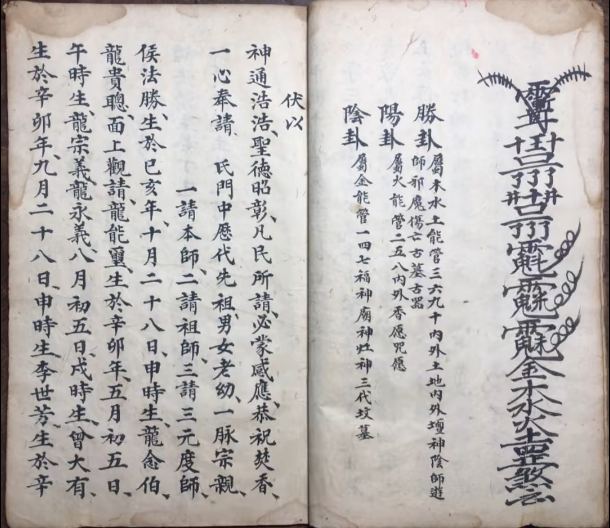 金木水火土
勝卦 屬木水土能管三六九十內外土地內外壇神陰師遊
師邪魔傷亡古墓古器
陽卦 屬火能管二五八內外香愿咒愿
陰卦 屬金能管一四七福神廟神灶神三代坟墓
伏以
神通浩浩、聖德昭彰、凡民所請、必蒙感應、恭祝焚香、
一心奉請 氏門中歷代先祖、男女老幼、一脉宗親、
一請本師、二請祖師、三請三元度師、
侯法勝、生於己亥年十月二十八日、申時生、龍念伯、
龍貴聰、面上觀請、龍能璽、生於辛卯年、五月初五日、
午時生、龍宗義、龍永義、八月初五日、戌時生、曾大有、
生於辛卯年、九月二十八日、申時生、李世芳、生於辛